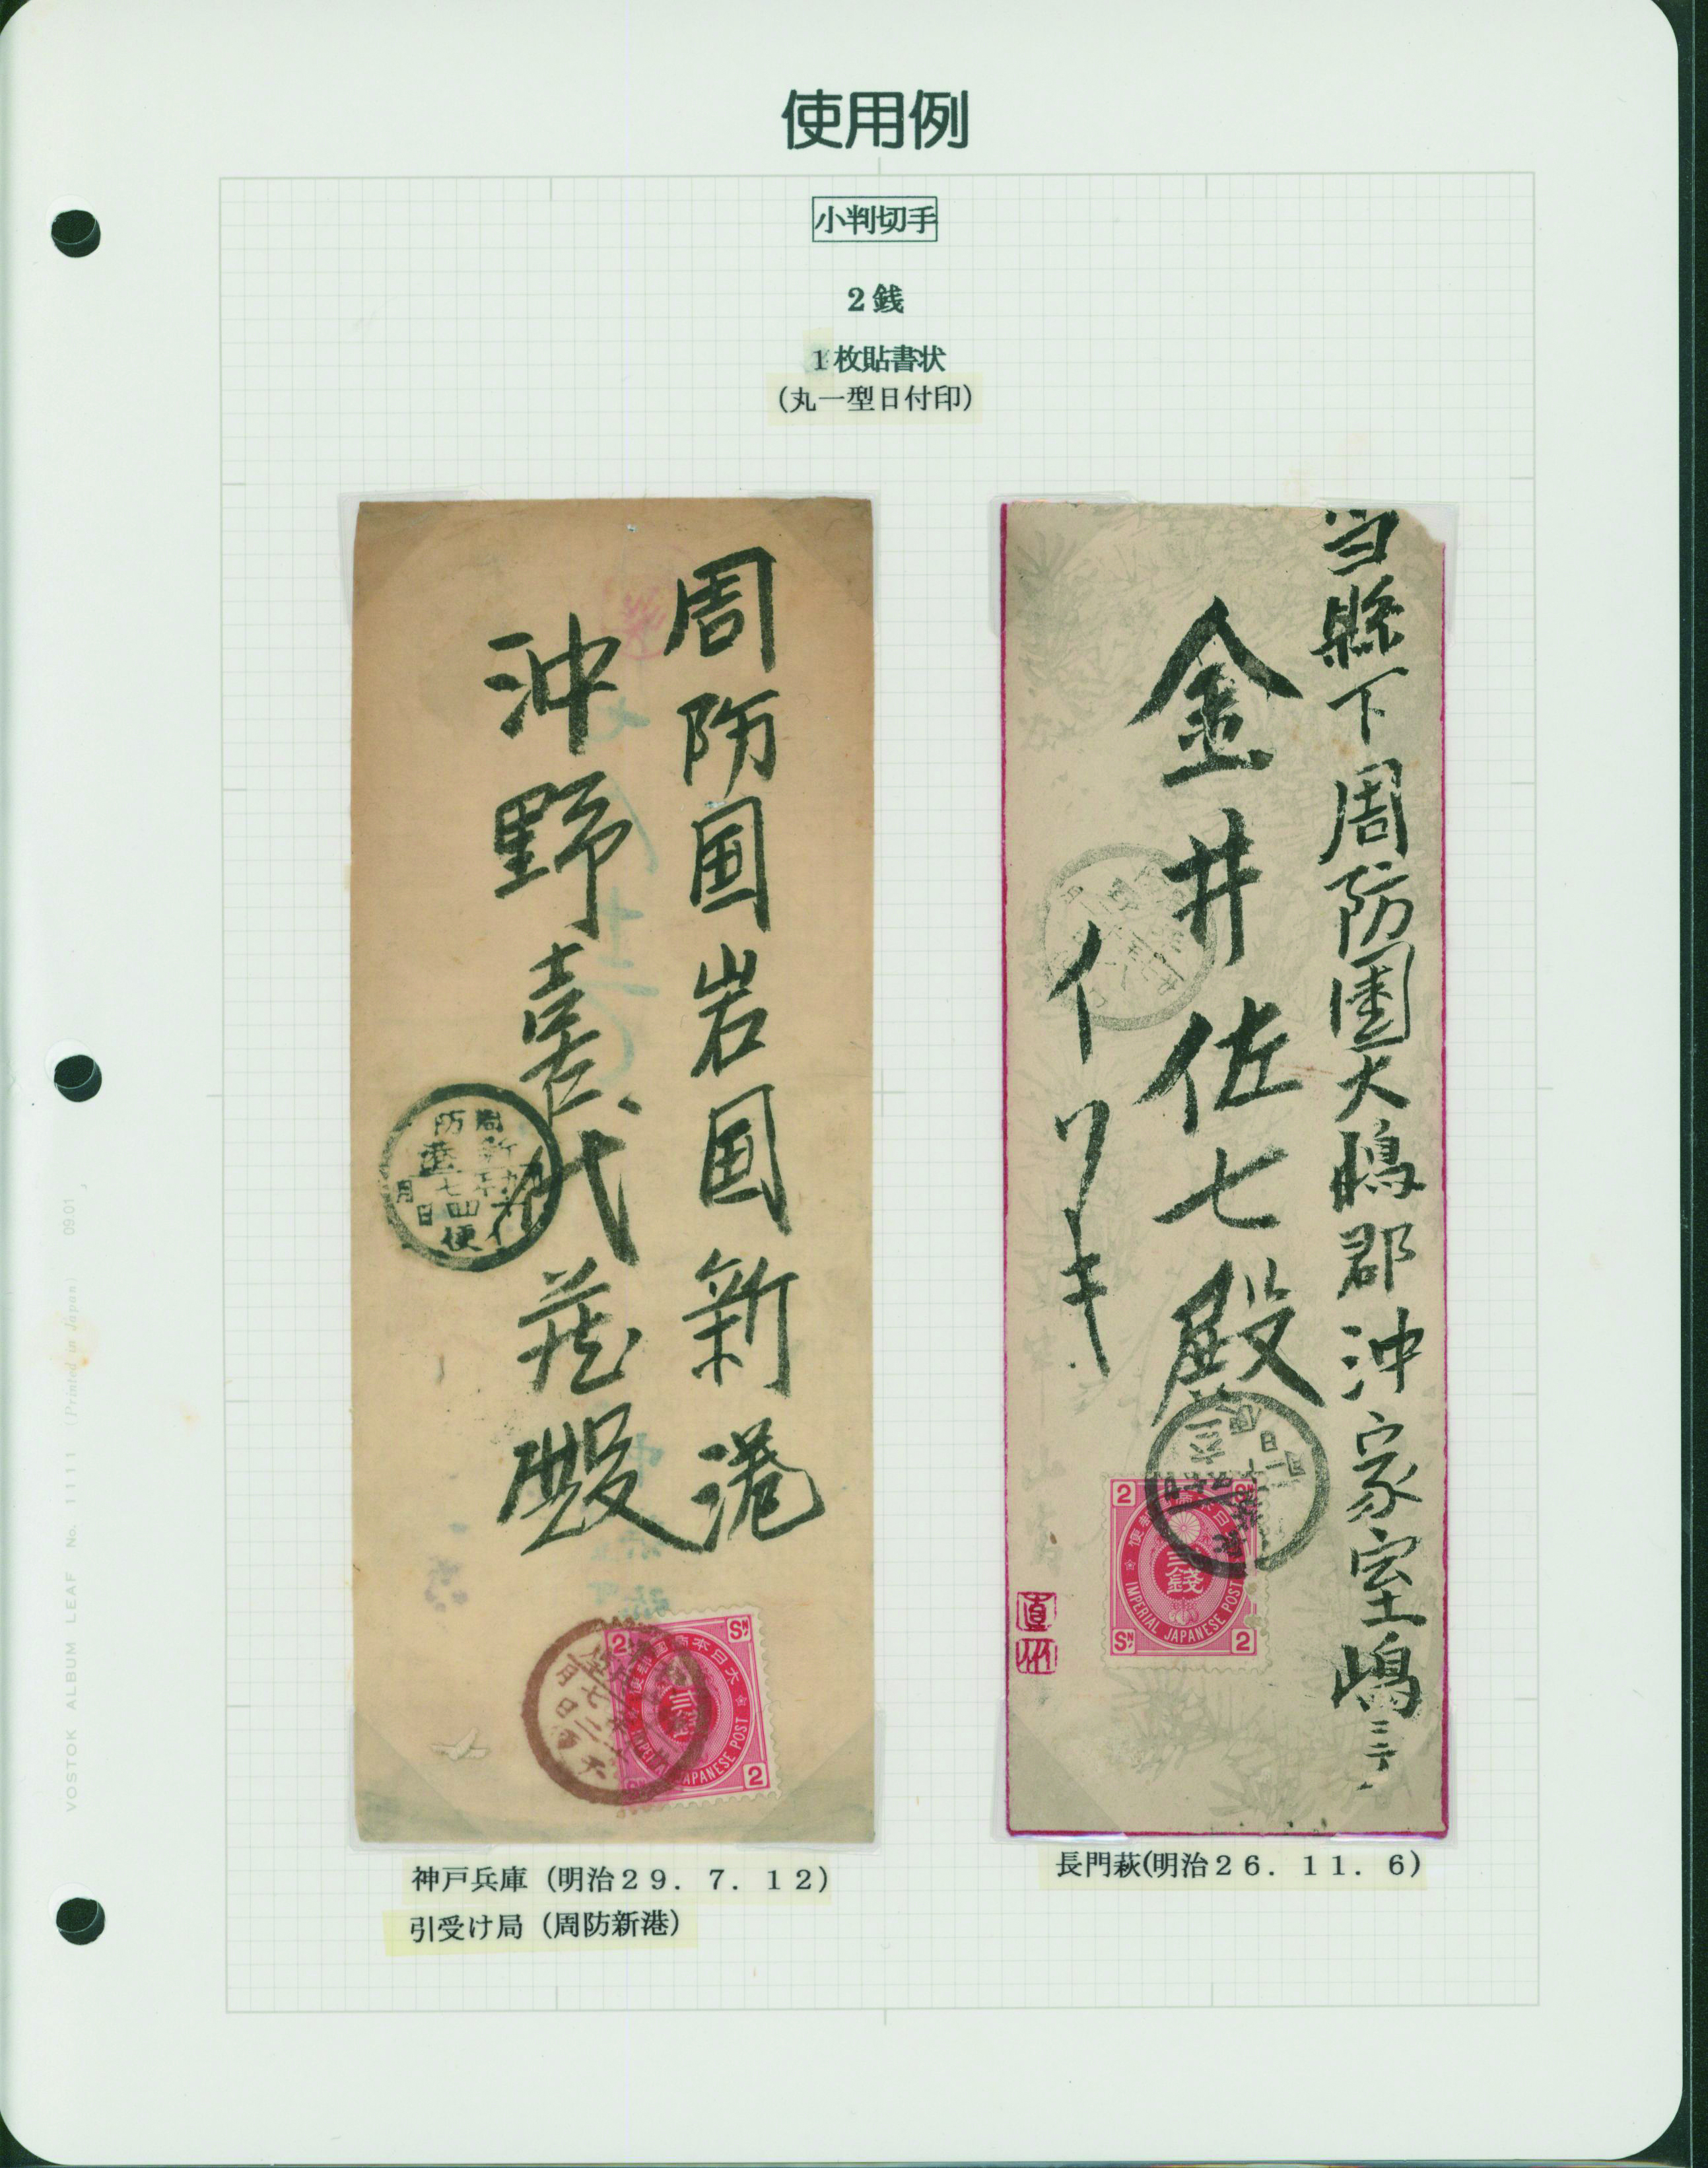 使用例
小判切手
2銭
1枚貼書状
(丸一型日付印)
周防国岩国新港
沖野喜代蔵殿
周防
新港
七
四
月
日
便
2
SN
大日本帝國郵便
IMPERIAL JAPANESE POST
2
当縣下周防國大嶋郡沖家室嶋ニテ
金井佐七殿
イワキ
2
SN
大日本帝國郵便
貳銭
IMPERIAL JAPANESE POST
SN
2
神戸兵庫 (明治29. 7. 12)
引受け局 (周防新港)
長門萩(明治26. 11. 6)
VOSTOK ALBUM LEAF No. 1111 (Printed in Japan) 09.01